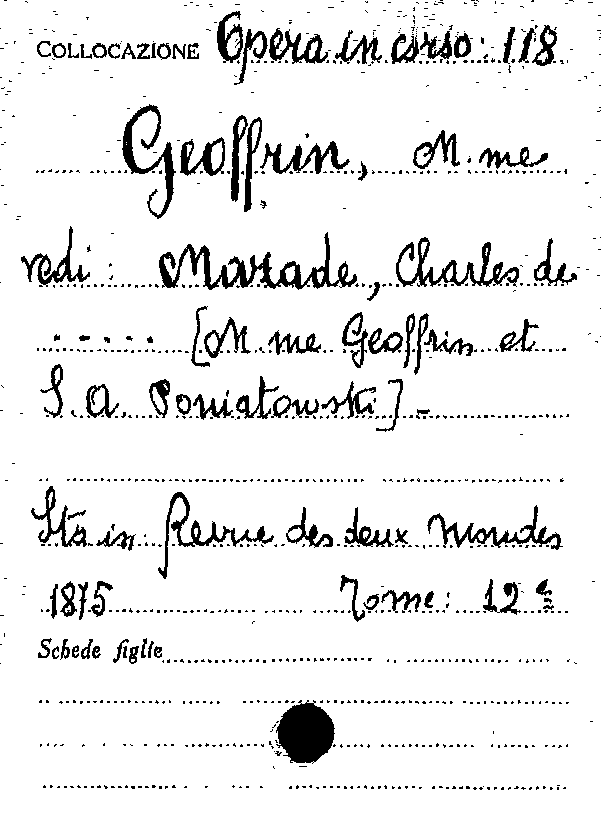 COLLOCAZIONE Opera in corso: 118
Geoffrin, M.me
vedi: Mazade, Charles de
..... [M.me Geoffrin et
S. A. Poniatowski] -
Sta in: Revue des deux Mondes
1875 Tome: 12e
Schede figlie